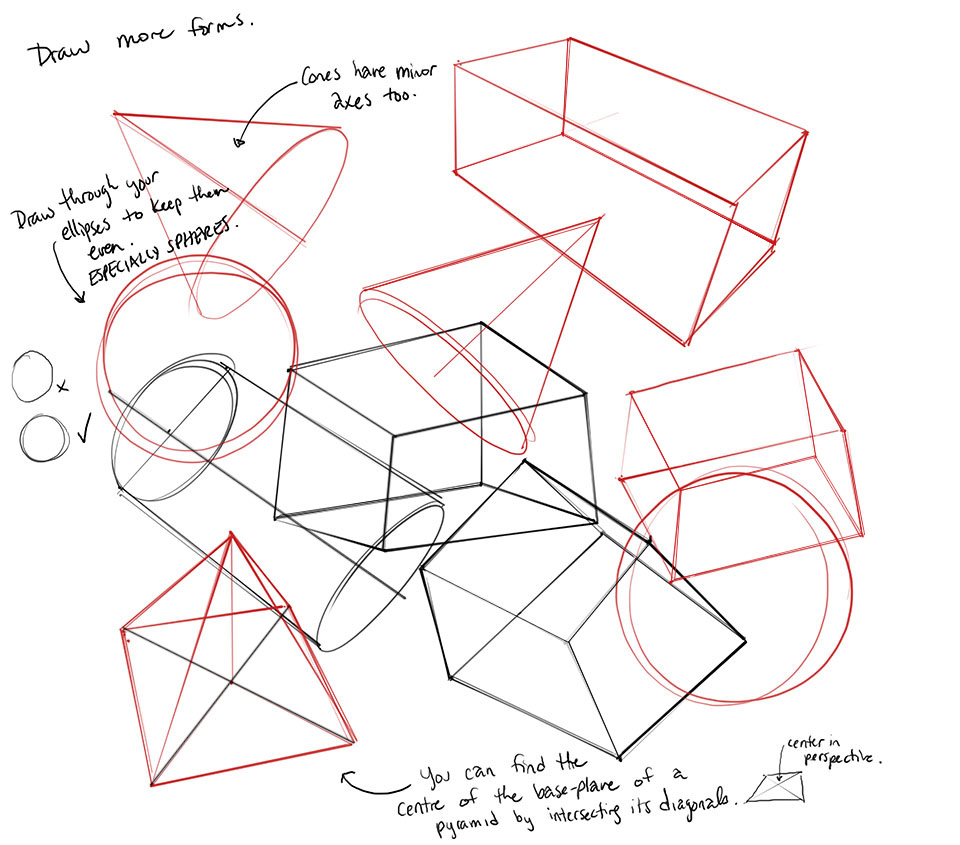 Draw more forms.
Cones have minor
axes too.
Draw through your
ellipses to keep them
even.
ESPECIALLY SPHERES.
You can find the
centre of the base-plane of a
pyramid by intersecting its diagonals.
center in
perspective.